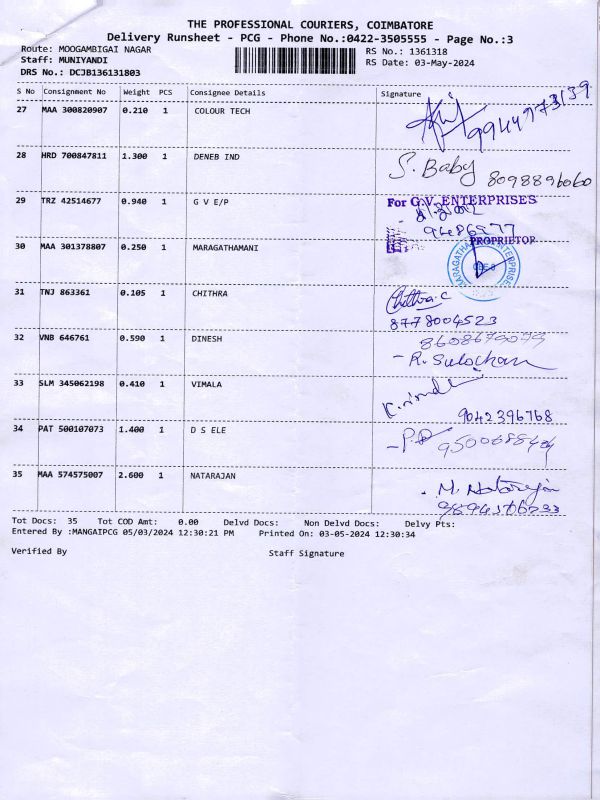 THE PROFESSIONAL COURIERS, COIMBATORE
Delivery Runsheet - PCG - Phone No.:0422-3505555 - Page No.:3
Route: MOOGAMBIGAI NAGAR RS No.: 1361318
Staff: MUNIYANDI RS Date: 03-May-2024
DRS No.: DCJB136131803
S No Consignment No Weight PCS Consignee Details Signature
27 MAA 300820907 0.210 1 COLOUR TECH
28 HRD 700847811 1.300 1 DENEB IND S. Baby 8098896060
29 TRZ 42514677 0.940 1 G V E/P For G.V. ENTERPRISES
PROPRIETOR
30 MAA 301378807 0.250 1 MARAGATHAMANI
31 TNJ 863361 0.105 1 CHITHRA Chithra.C
8778004523
32 VNB 646761 0.590 1 DINESH
- R. Sulochan
33 SLM 345062198 0.410 1 VIMALA
9042396768
34 PAT 500107073 1.400 1 D S ELE
35 MAA 574575007 2.600 1 NATARAJAN M. Natarajan
Tot Docs: 35 Tot COD Amt: 0.00 Delvd Docs: Non Delvd Docs: Delvy Pts:
Entered By :MANGAIPCG 05/03/2024 12:30:21 PM Printed On: 03-05-2024 12:30:34
Verified By Staff Signature